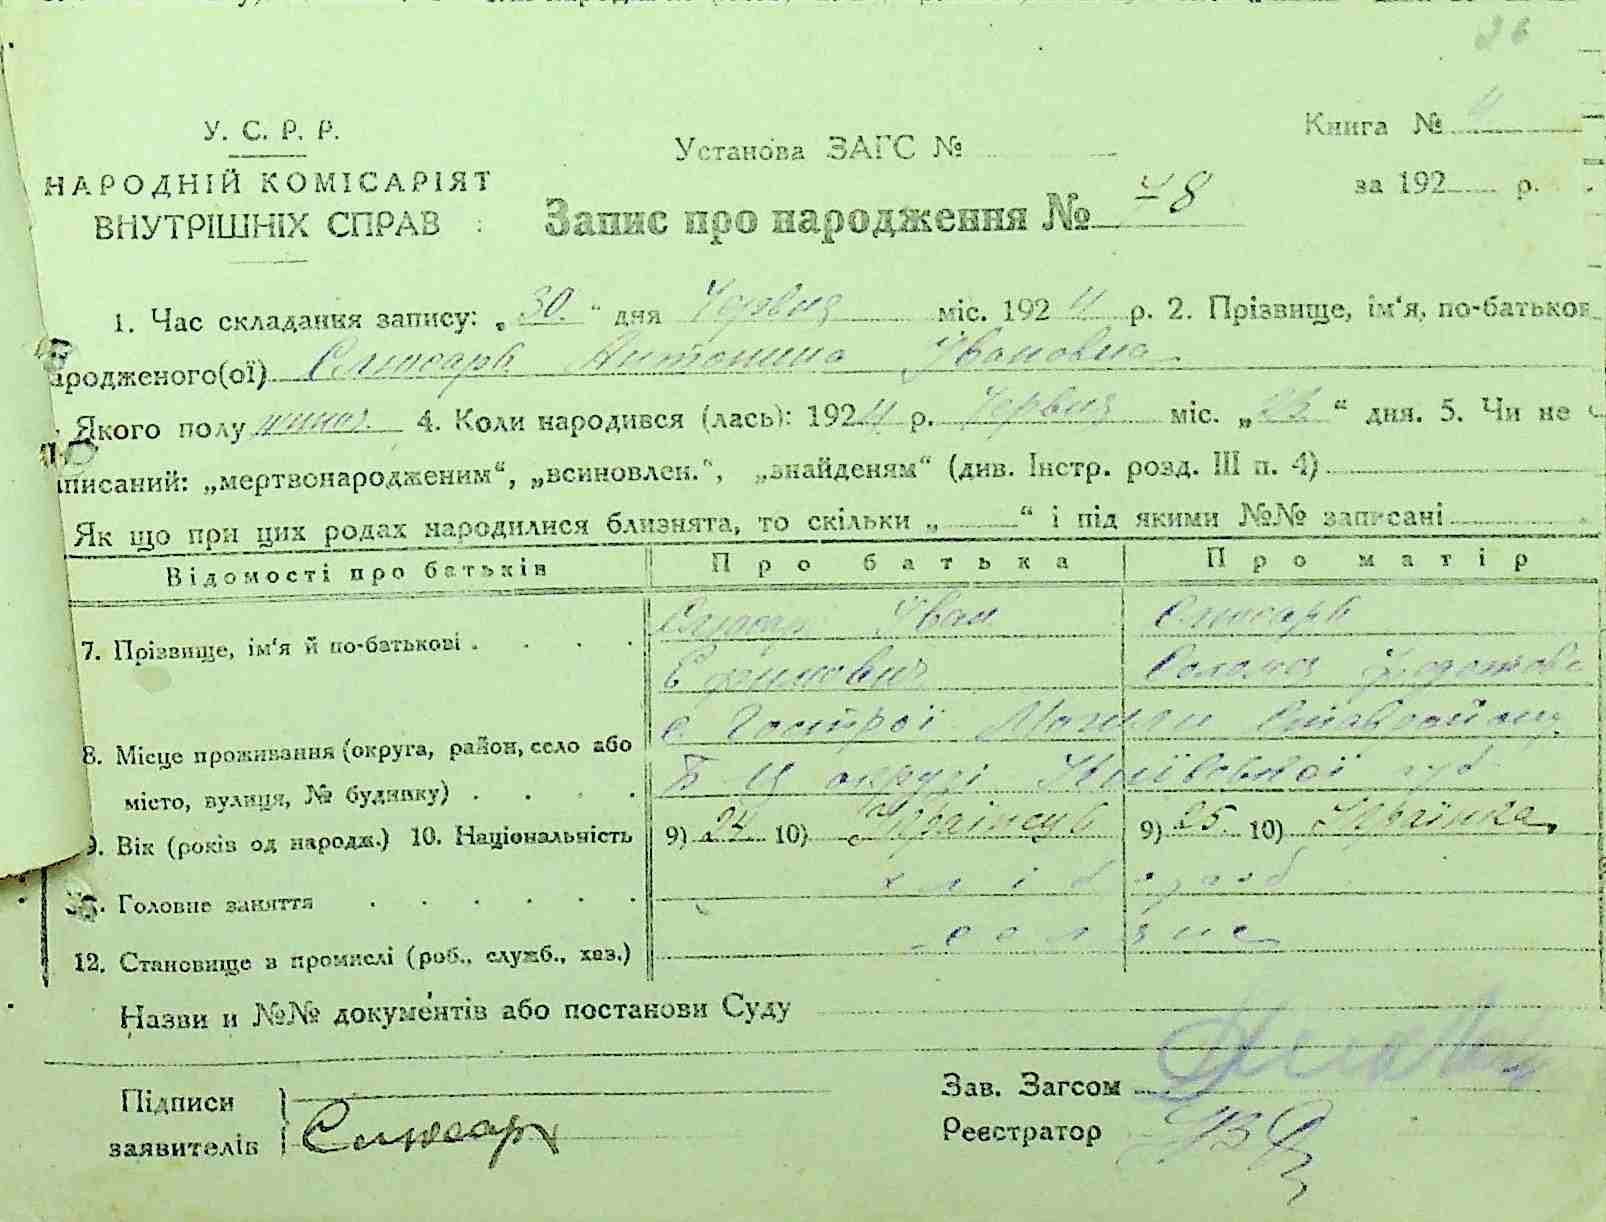 У. С. Р. Р.
НАРОДНІЙ КОМІСАРІЯТ
ВНУТРІШНІХ СПРАВ
Установа ЗАГС №
Книга № 4
за 192 р.
Запис про народження № 48
1. Час складання запису: „30.“ дня Червня міс. 1924 р. 2. Прізвище, ім‘я, по-батькові
ародженого(ої) Слюсарь Антонина Ивановна
Якого полу жіноч. 4. Коли народився (лась): 1924 р. Червня міс. „23“ дня. 5. Чи не
писаний: „мертвонародженим“, „всиновлен.“, „знайденям“ (див. Інстр. розд. III п. 4)
Як що при цих родах народилися близнята, то скільки „ “ і під якими №№ записані
Відомості про батьків Про батька Про матір
7. Прізвище, ім‘я й по-батькові Слюсар Иван Слюсарь
Ефимович
с Гострої Могили Ставл
8. Місце проживання (округа, район, село або
місто, вулиця, № будинку) Б Ц округі Київської губ
9. Вік (років од народж.) 10. Національність 9) 24 10) Українець 9) 25 10) Українка
Головне заняття хлібороб
12. Становище в промислі (роб., служб., хаз.)
Назви и №№ документів або постанови Суду
Зав. Загсом
Підписи
заявителів Слюсарь
Реєстратор